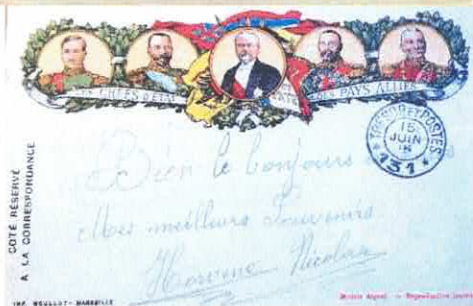 LES CHEFS D'ETAT DES PAYS ALLIES
TRESOR ET POSTES
15
JUIN
15
* 131 *
COTÉ RÉSERVÉ
A LA CORRESPONDANCE
Bien le bonjours
Mes meilleurs Souvenirs
Nicolas
IMP. MOULLOT - MARSEILLE
Modèle déposé